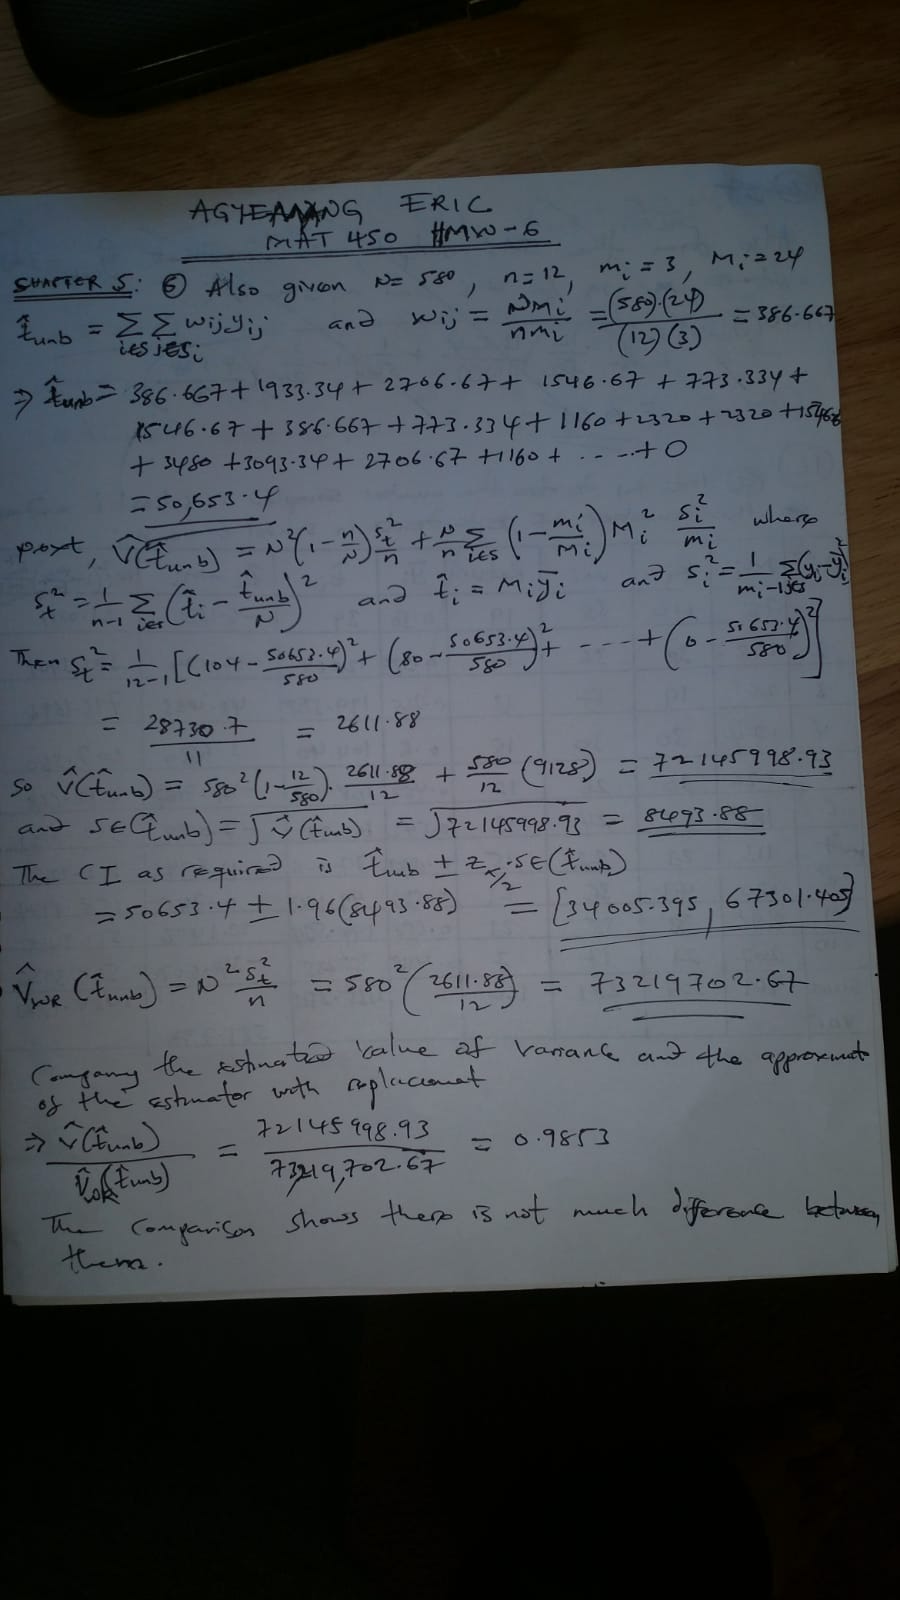 AGYEMANG ERIC
MAT 450 HMW-6
CHAPTER 5: ⑥ Also given N= 580, n=12, mᵢ = 3, Mᵢ=24
t̂unb = Σi∈S Σj∈Sᵢ wᵢⱼyᵢⱼ and wᵢⱼ = NMᵢ/nmᵢ = (580)·(24)/(12)(3) = 386.667
⇒ t̂unb = 386.667 + 1933.34 + 2706.67 + 1546.67 + 773.334 +
1546.67 + 386.667 + 773.334 + 1160 + 2320 + 2320 +
+ 3480 + 3093.34 + 2706.67 + 1160 + ..... + 0
= 50,653.4
next, V̂(t̂unb) = N²(1 - n/N) sₜ²/n + N/n Σi∈S (1 - mᵢ/Mᵢ) Mᵢ² sᵢ²/mᵢ where
sₜ² = 1/n-1 Σi∈S (t̂ᵢ - t̂unb/N)² and t̂ᵢ = Mᵢȳᵢ and sᵢ² = 1/mᵢ-1
Then sₜ² = 1/12-1 [(104 - 50653.4/580)² + (80 - 50653.4/580)² + ---- + (0 - 50653.4/580)²]
= 28730.7/11 = 2611.88
so V̂(t̂unb) = 580²(1-12/580). 2611.88/12 + 580/12 (9128) = 72145998.93
and SE(t̂unb) = √V̂(t̂unb) = √72145998.93 = 8493.88
The CI as required is t̂unb ± z∝/2 . SE(t̂unb)
= 50653.4 ± 1.96(8493.88) = [34005.395, 67301.405]
V̂WR (t̂unb) = N² sₜ²/n = 580² (2611.88/12) = 73219702.67
Comparing the estimated value of variance and the approximat
of the estimator with replacement
⇒ V̂(t̂unb)/V̂WR(t̂unb) = 72145998.93/73,219,702.67 = 0.9853
The comparison shows there is not much difference between
them.